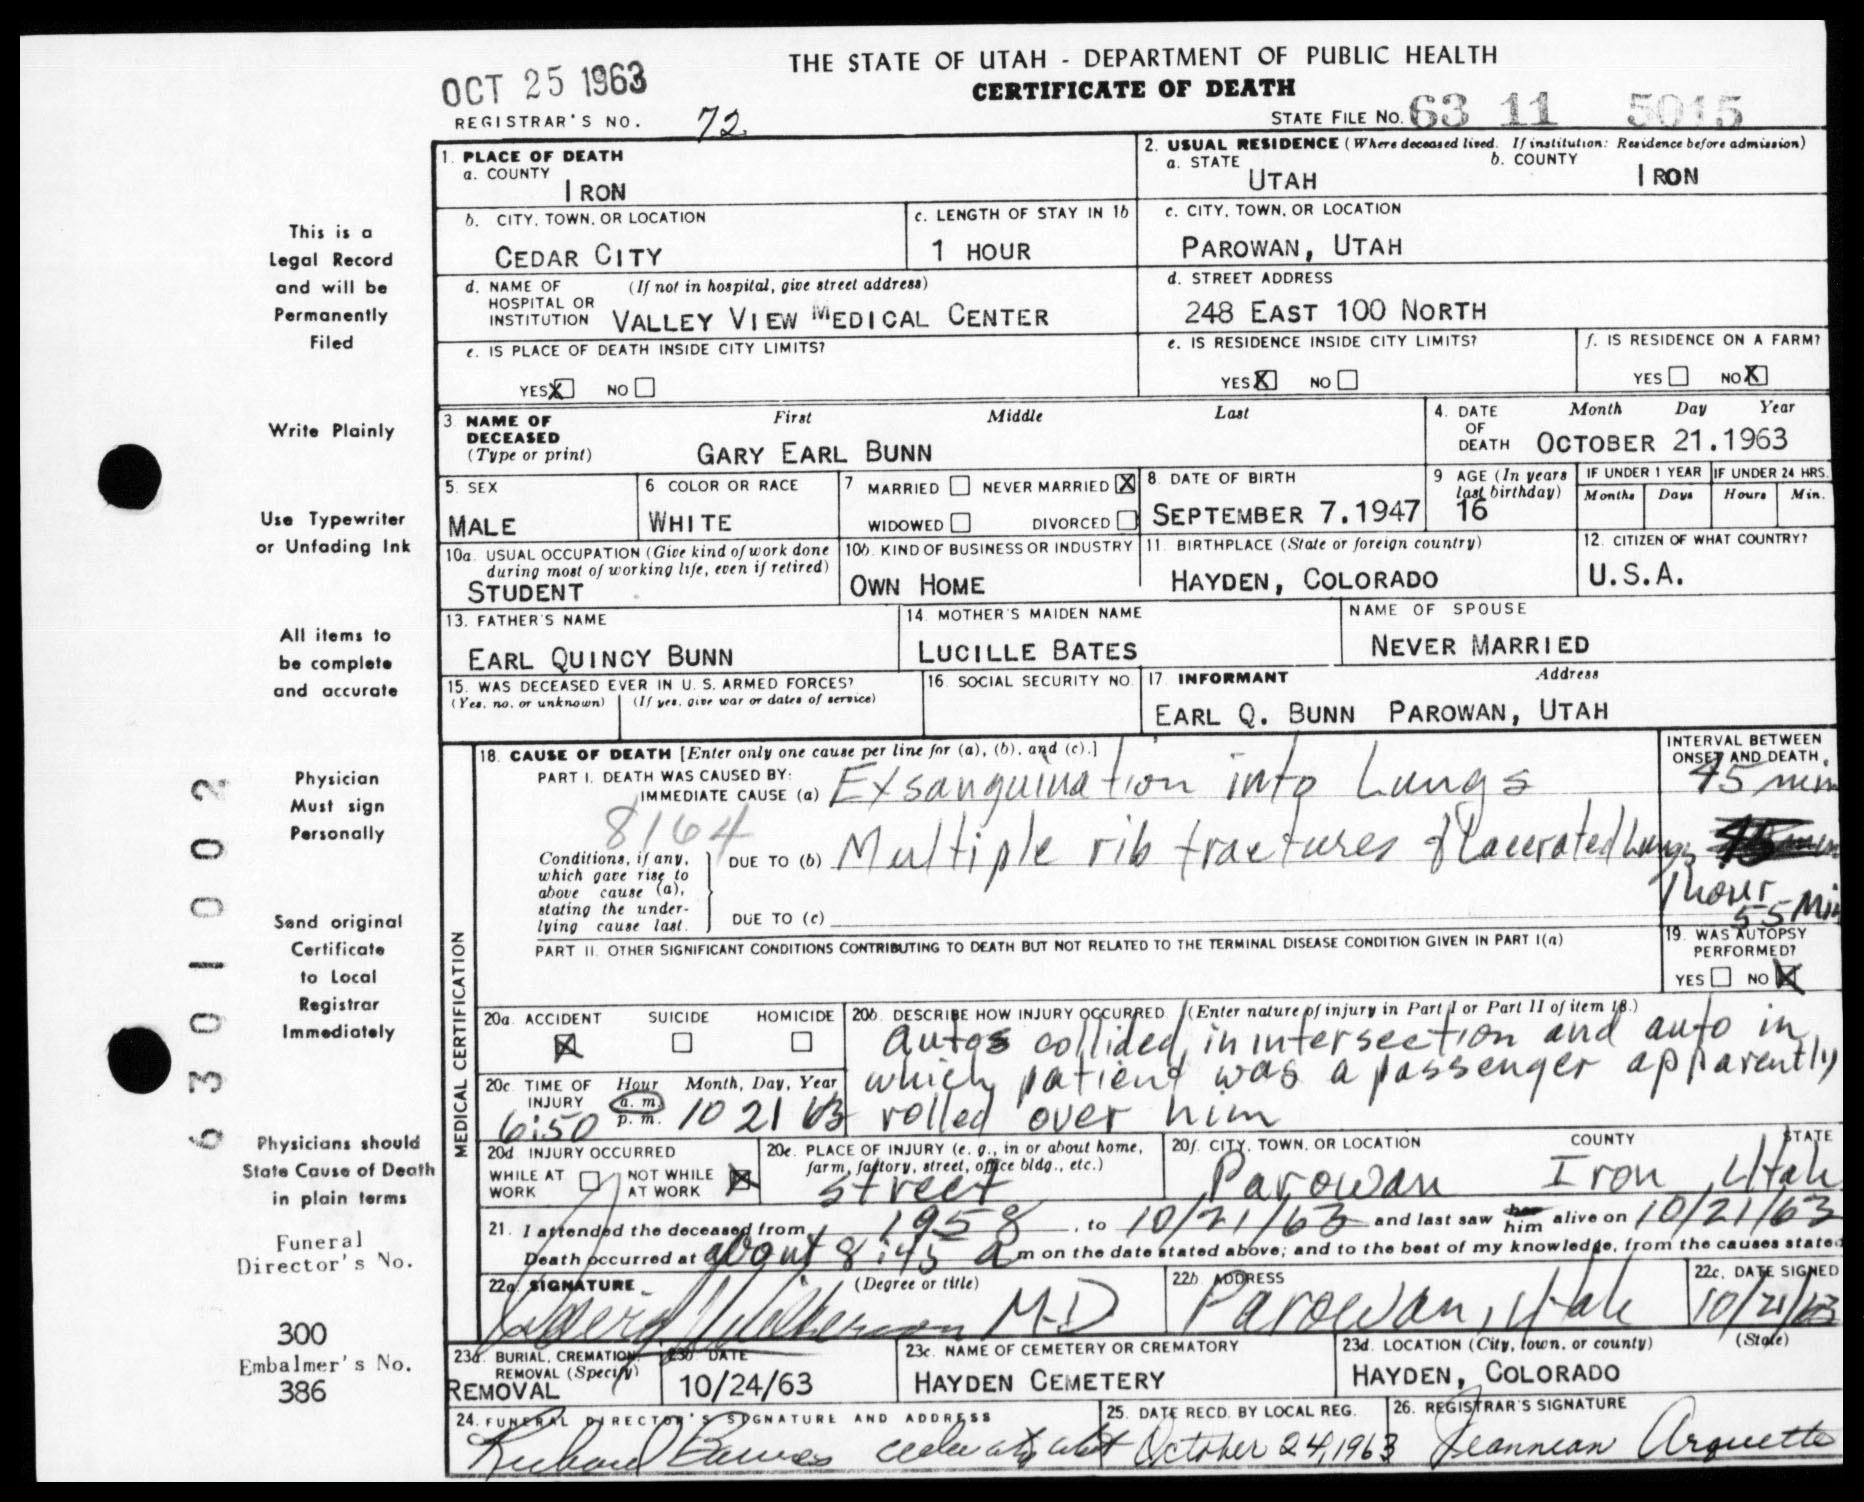 THE STATE OF UTAH - DEPARTMENT OF PUBLIC HEALTH
OCT 25 1963
CERTIFICATE OF DEATH
REGISTRAR'S NO. 72
STATE FILE NO. 63 11 5015
1. PLACE OF DEATH
a. COUNTY
IRON
2. USUAL RESIDENCE (Where deceased lived. If institution: Residence before admission)
a. STATE UTAH b. COUNTY IRON
b. CITY, TOWN, OR LOCATION
CEDAR CITY
c. LENGTH OF STAY IN 1b
1 HOUR
c. CITY, TOWN, OR LOCATION
PAROWAN, UTAH
d. NAME OF HOSPITAL OR INSTITUTION (If not in hospital, give street address)
VALLEY VIEW MEDICAL CENTER
d. STREET ADDRESS
248 EAST 100 NORTH
e. IS PLACE OF DEATH INSIDE CITY LIMITS?
YES X NO
e. IS RESIDENCE INSIDE CITY LIMITS?
YES X NO
f. IS RESIDENCE ON A FARM?
YES NO X
3 NAME OF DECEASED (Type or print) First Middle Last
GARY EARL BUNN
4. DATE OF DEATH Month Day Year
OCTOBER 21.1963
5. SEX
MALE
6 COLOR OR RACE
WHITE
7 MARRIED NEVER MARRIED X
WIDOWED DIVORCED
8. DATE OF BIRTH
SEPTEMBER 7.1947
9 AGE (In years last birthday)
16
IF UNDER 1 YEAR
Months Days
IF UNDER 24 HRS.
Hours Min.
10a. USUAL OCCUPATION (Give kind of work done during most of working life, even if retired)
STUDENT
10b. KIND OF BUSINESS OR INDUSTRY
OWN HOME
11. BIRTHPLACE (State or foreign country)
HAYDEN, COLORADO
12. CITIZEN OF WHAT COUNTRY?
U.S.A.
13. FATHER'S NAME
EARL QUINCY BUNN
14. MOTHER'S MAIDEN NAME
LUCILLE BATES
NAME OF SPOUSE
NEVER MARRIED
15. WAS DECEASED EVER IN U. S. ARMED FORCES?
(Yes, no, or unknown) (If yes, give war or dates of service)
16. SOCIAL SECURITY NO.
17. INFORMANT Address
EARL Q. BUNN PAROWAN, UTAH
MEDICAL CERTIFICATION
18. CAUSE OF DEATH [Enter only one cause per line for (a), (b), and (c).]
PART I. DEATH WAS CAUSED BY:
IMMEDIATE CAUSE (a) Exsanguination into Lungs
INTERVAL BETWEEN ONSET AND DEATH
45 min
8164
Conditions, if any, which gave rise to above cause (a), stating the underlying cause last.
DUE TO (b) Multiple rib fractures & Lacerated Lungs
1 hour
55 Min
DUE TO (c)
PART II. OTHER SIGNIFICANT CONDITIONS CONTRIBUTING TO DEATH BUT NOT RELATED TO THE TERMINAL DISEASE CONDITION GIVEN IN PART I(a)
19. WAS AUTOPSY PERFORMED?
YES NO X
20a. ACCIDENT X SUICIDE HOMICIDE
20b. DESCRIBE HOW INJURY OCCURRED. (Enter nature of injury in Part I or Part II of item 18.)
autos collided, in intersection and auto in
which patient was a passenger apparently
rolled over him
20c. TIME OF INJURY Hour a. m. p. m. Month, Day, Year
6:50 10 21 63
20d. INJURY OCCURRED
WHILE AT WORK NOT WHILE AT WORK X
20e. PLACE OF INJURY (e. g., in or about home, farm, factory, street, office bldg., etc.)
street
20f. CITY, TOWN, OR LOCATION COUNTY STATE
Parowan Iron Utah
21. I attended the deceased from 1958, to 10/21/63 and last saw him alive on 10/21/63
Death occurred at about 8:45 a m on the date stated above; and to the best of my knowledge, from the causes stated
22a. SIGNATURE (Degree or title)
M-D
22b. ADDRESS
Parowan, Utah
22c. DATE SIGNED
10/21/63
23a. BURIAL, CREMATION, REMOVAL (Specify)
REMOVAL
23b. DATE
10/24/63
23c. NAME OF CEMETERY OR CREMATORY
HAYDEN CEMETERY
23d. LOCATION (City, town, or county) (State)
HAYDEN, COLORADO
24. FUNERAL DIRECTOR'S SIGNATURE AND ADDRESS
25. DATE RECD. BY LOCAL REG.
October 24, 1963
26. REGISTRAR'S SIGNATURE
Jeannean Arquette
This is a
Legal Record
and will be
Permanently
Filed
Write Plainly
Use Typewriter
or Unfading Ink
All items to
be complete
and accurate
Physician
Must sign
Personally
Send original
Certificate
to Local
Registrar
Immediately
Physicians should
State Cause of Death
in plain terms
Funeral
Director's No.
300
Embalmer's No.
386
6301002